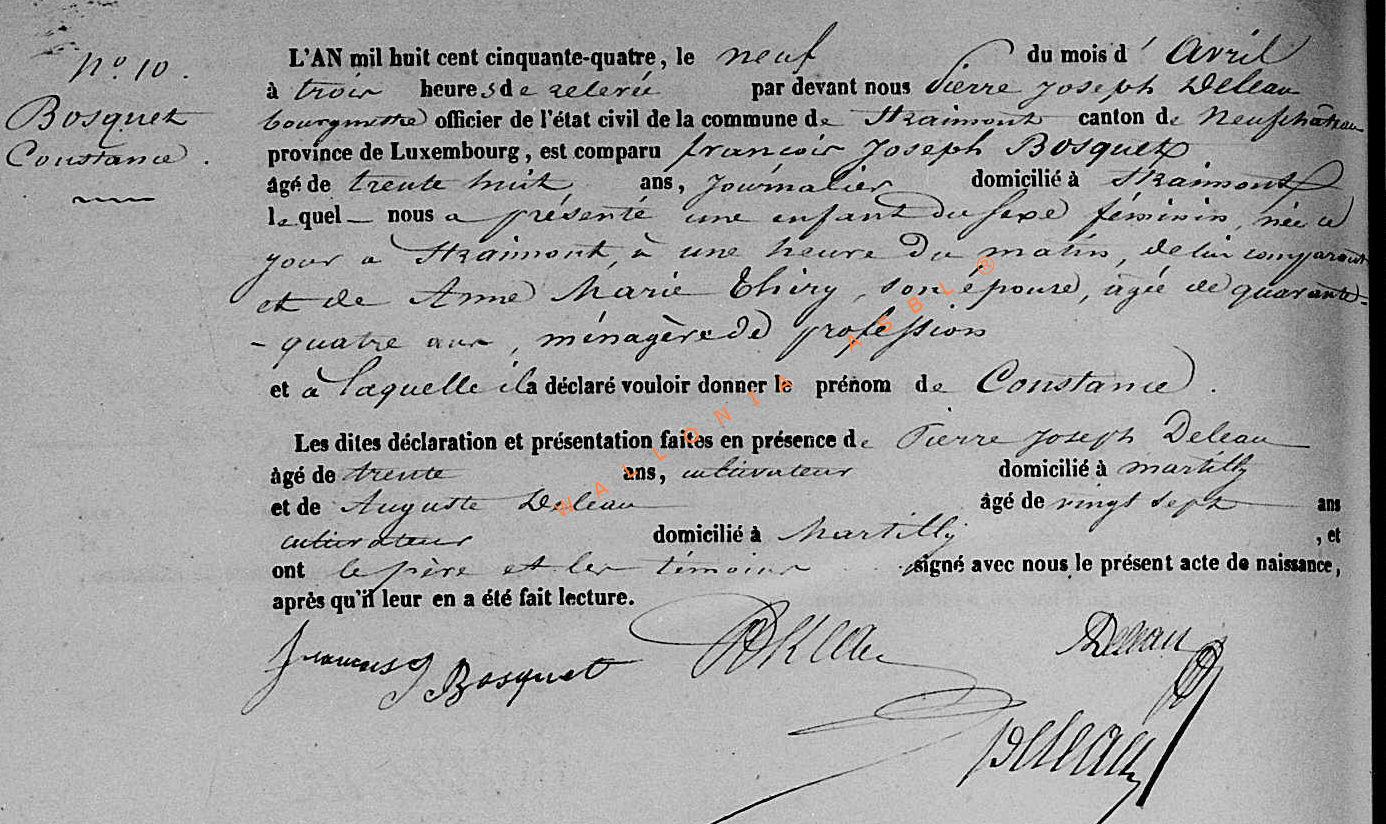 N° 10.
Bosquet
Constance.
L'AN mil huit cent cinquante-quatre, le neuf du mois d' Avril
à trois heures de relevée par devant nous Pierre Joseph Deleau
bourgmestre officier de l'état civil de la commune de Straimont canton de Neufchâteau
province de Luxembourg, est comparu françois Joseph Bosquet
âgé de trente huit ans, journalier domicilié à Straimont
lequel nous a présenté une enfant du sexe féminin, née ce
jour a Straimont, à une heure du matin, de lui comparant
et de Anne Marie Thiry, son épouse, agée de quarante-
- quatre ans, ménagère de profession
et à laquelle il a déclaré vouloir donner le prénom de Constance.
Les dites déclaration et présentation faites en présence de Pierre Joseph Deleau
âgé de trente ans, cultivateur domicilié à martilly
et de Auguste Deleau âgé de vingt sept ans
cultivateur domicilié à Martilly, et
ont le père et les témoins signé avec nous le présent acte de naissance,
après qu'il leur en a été fait lecture.
françois J Bosquet Deleau Deleau
PDeleau
WALLONIA ASBL®